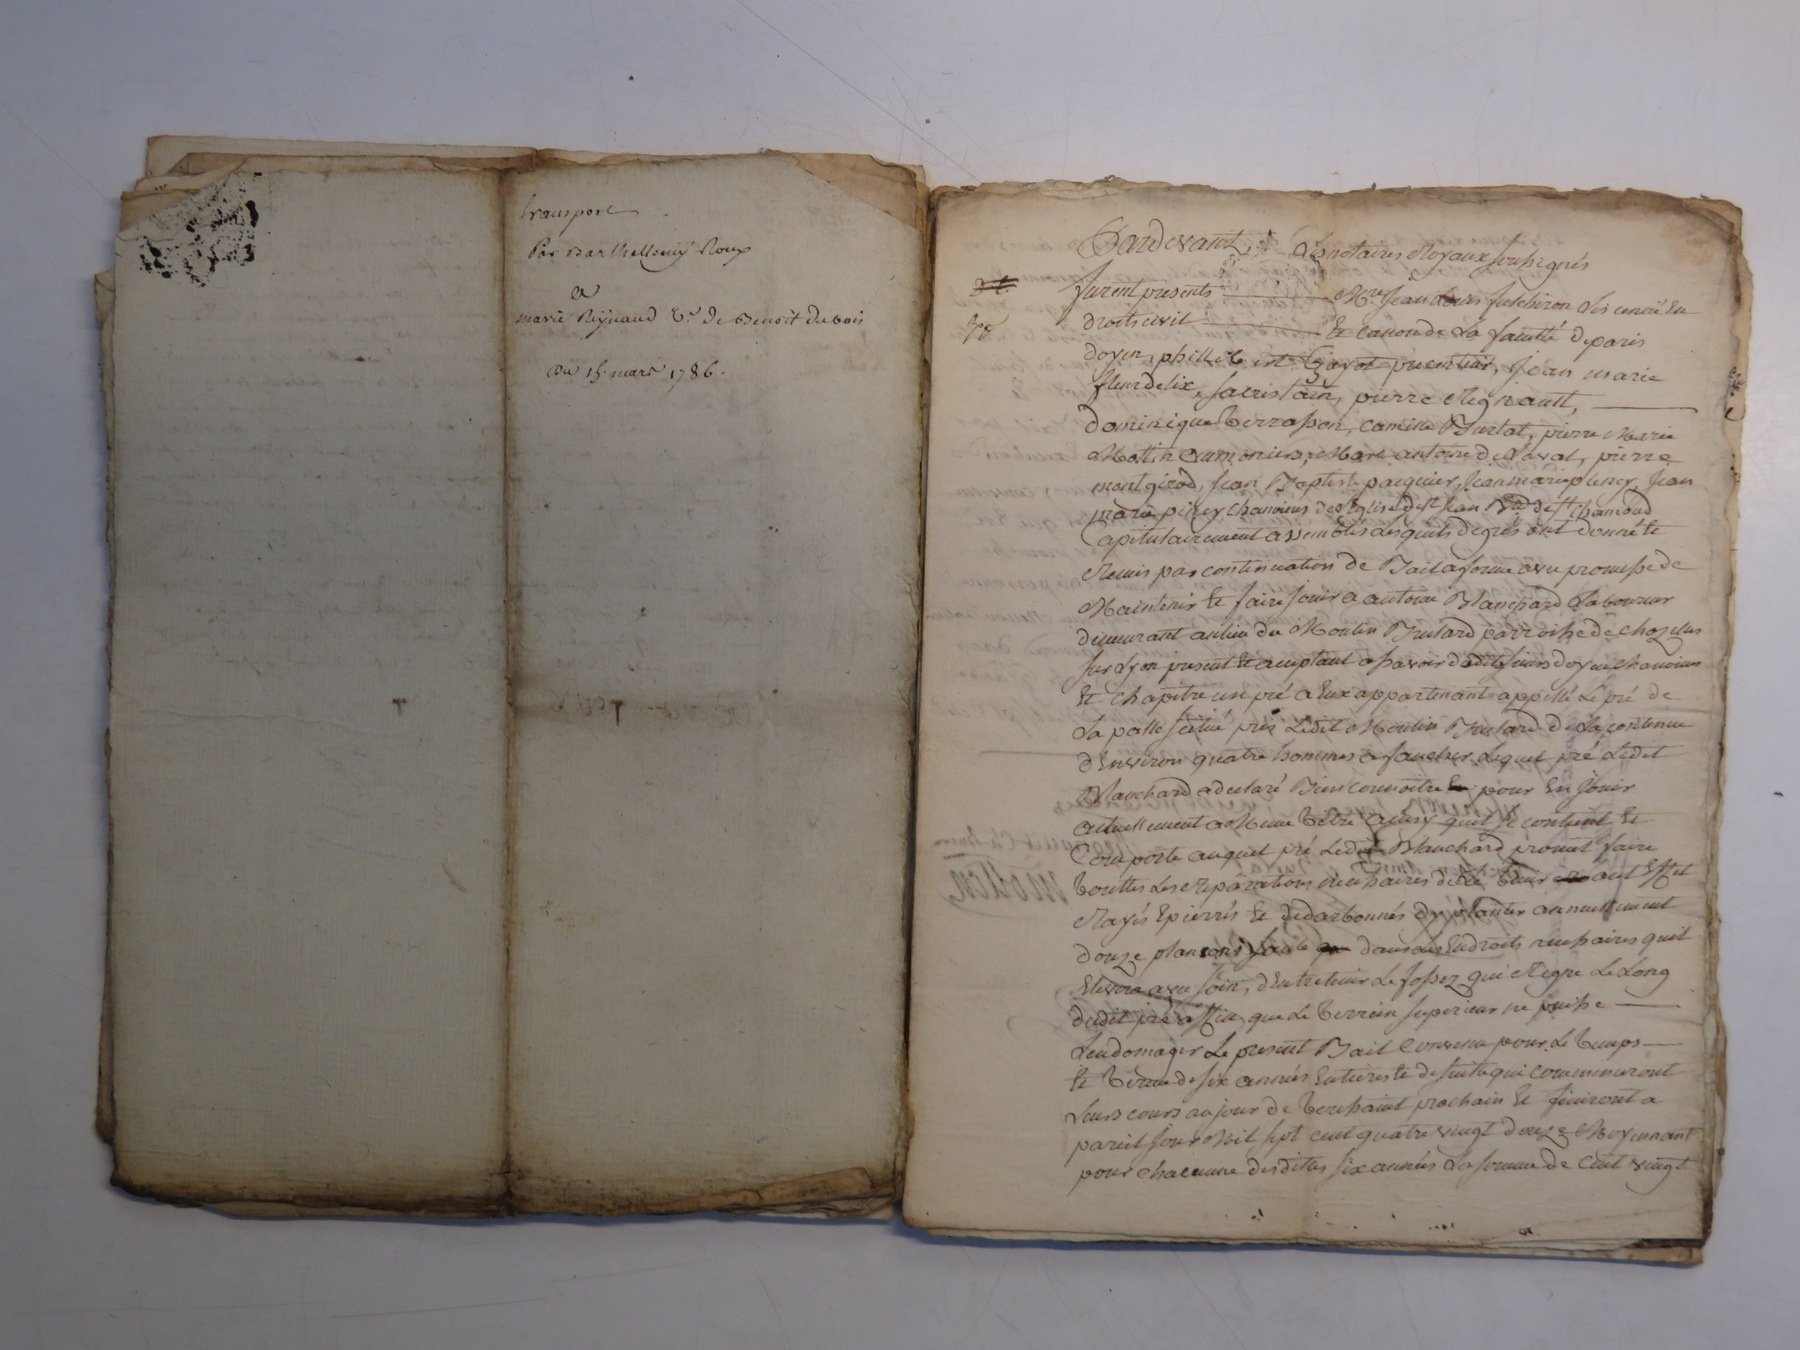 transport
Par Barthellemy Roux
a
marie Reynaud Ve. de Benoit dubois
Du 15. mars 1786.
Pardevant, Les notaires Royaux soussignés
furent presents Mre. Jean Louis futchiron Licencié En
droits civil Et canon de La faculté de paris
doyen, phillib Gayot precentur, Jean marie
fleurdelix, sacristain, pierre Regnault,
dominique terrasson, camille Burtat, pierre Marie
Mottin aumoniers, Marc antoine de Laval, pierre
montgirod, Jean Baptiste paquier, Jean marie pincy, Jean
marie pincy chanoines de L'Eglise de st. Jean Bte. de st. chamond
Capitulairement assemblés Lesquels degrés ont donné Et
Remis par continuation de Bail a ferme avec promesse de
Maintenir Et faire Jouir a antoine Blanchard Laboureur
demeurant au lieu du Moulin parroisse de chazelles
sur Lyon present Et acceptant a savoir desdits sieurs doyen chanoines
Et chapitre un pré a Eux appartenant appellé Le pré de
La palle situé prez Ledit Moulin de La contenue
d'Environ quatre hommes a faucher Lequel pré Ledit
Blanchard a declaré Bien connoitre pour En Jouir
actuellement a Meme titre ainsy quil se contient Et
Comporte auquel pré Ledit Blanchard promet faire
touttes Les Reparations necessaires de Le tenir aut Effet
Rayés Epierrés Et dy planter annuellement
douze plançons saule dans Les Endroits necessaires quil
Elevera avec soin, d'Entretenir Le fossez qui Regne Le Long
dudit pré affin que Le terrein superieur ne puisse
L'endomager Le present Bail Convenu pour Le temps
Et terme de six années Entieres Et de suitte qui commenceront
Leurs cours au jour de toussaint prochain Et finiront a
pareil Jour Mil sept cent quatre vingt douze Moyennant
pour chacunne desdittes six années La somme de Cent vingt